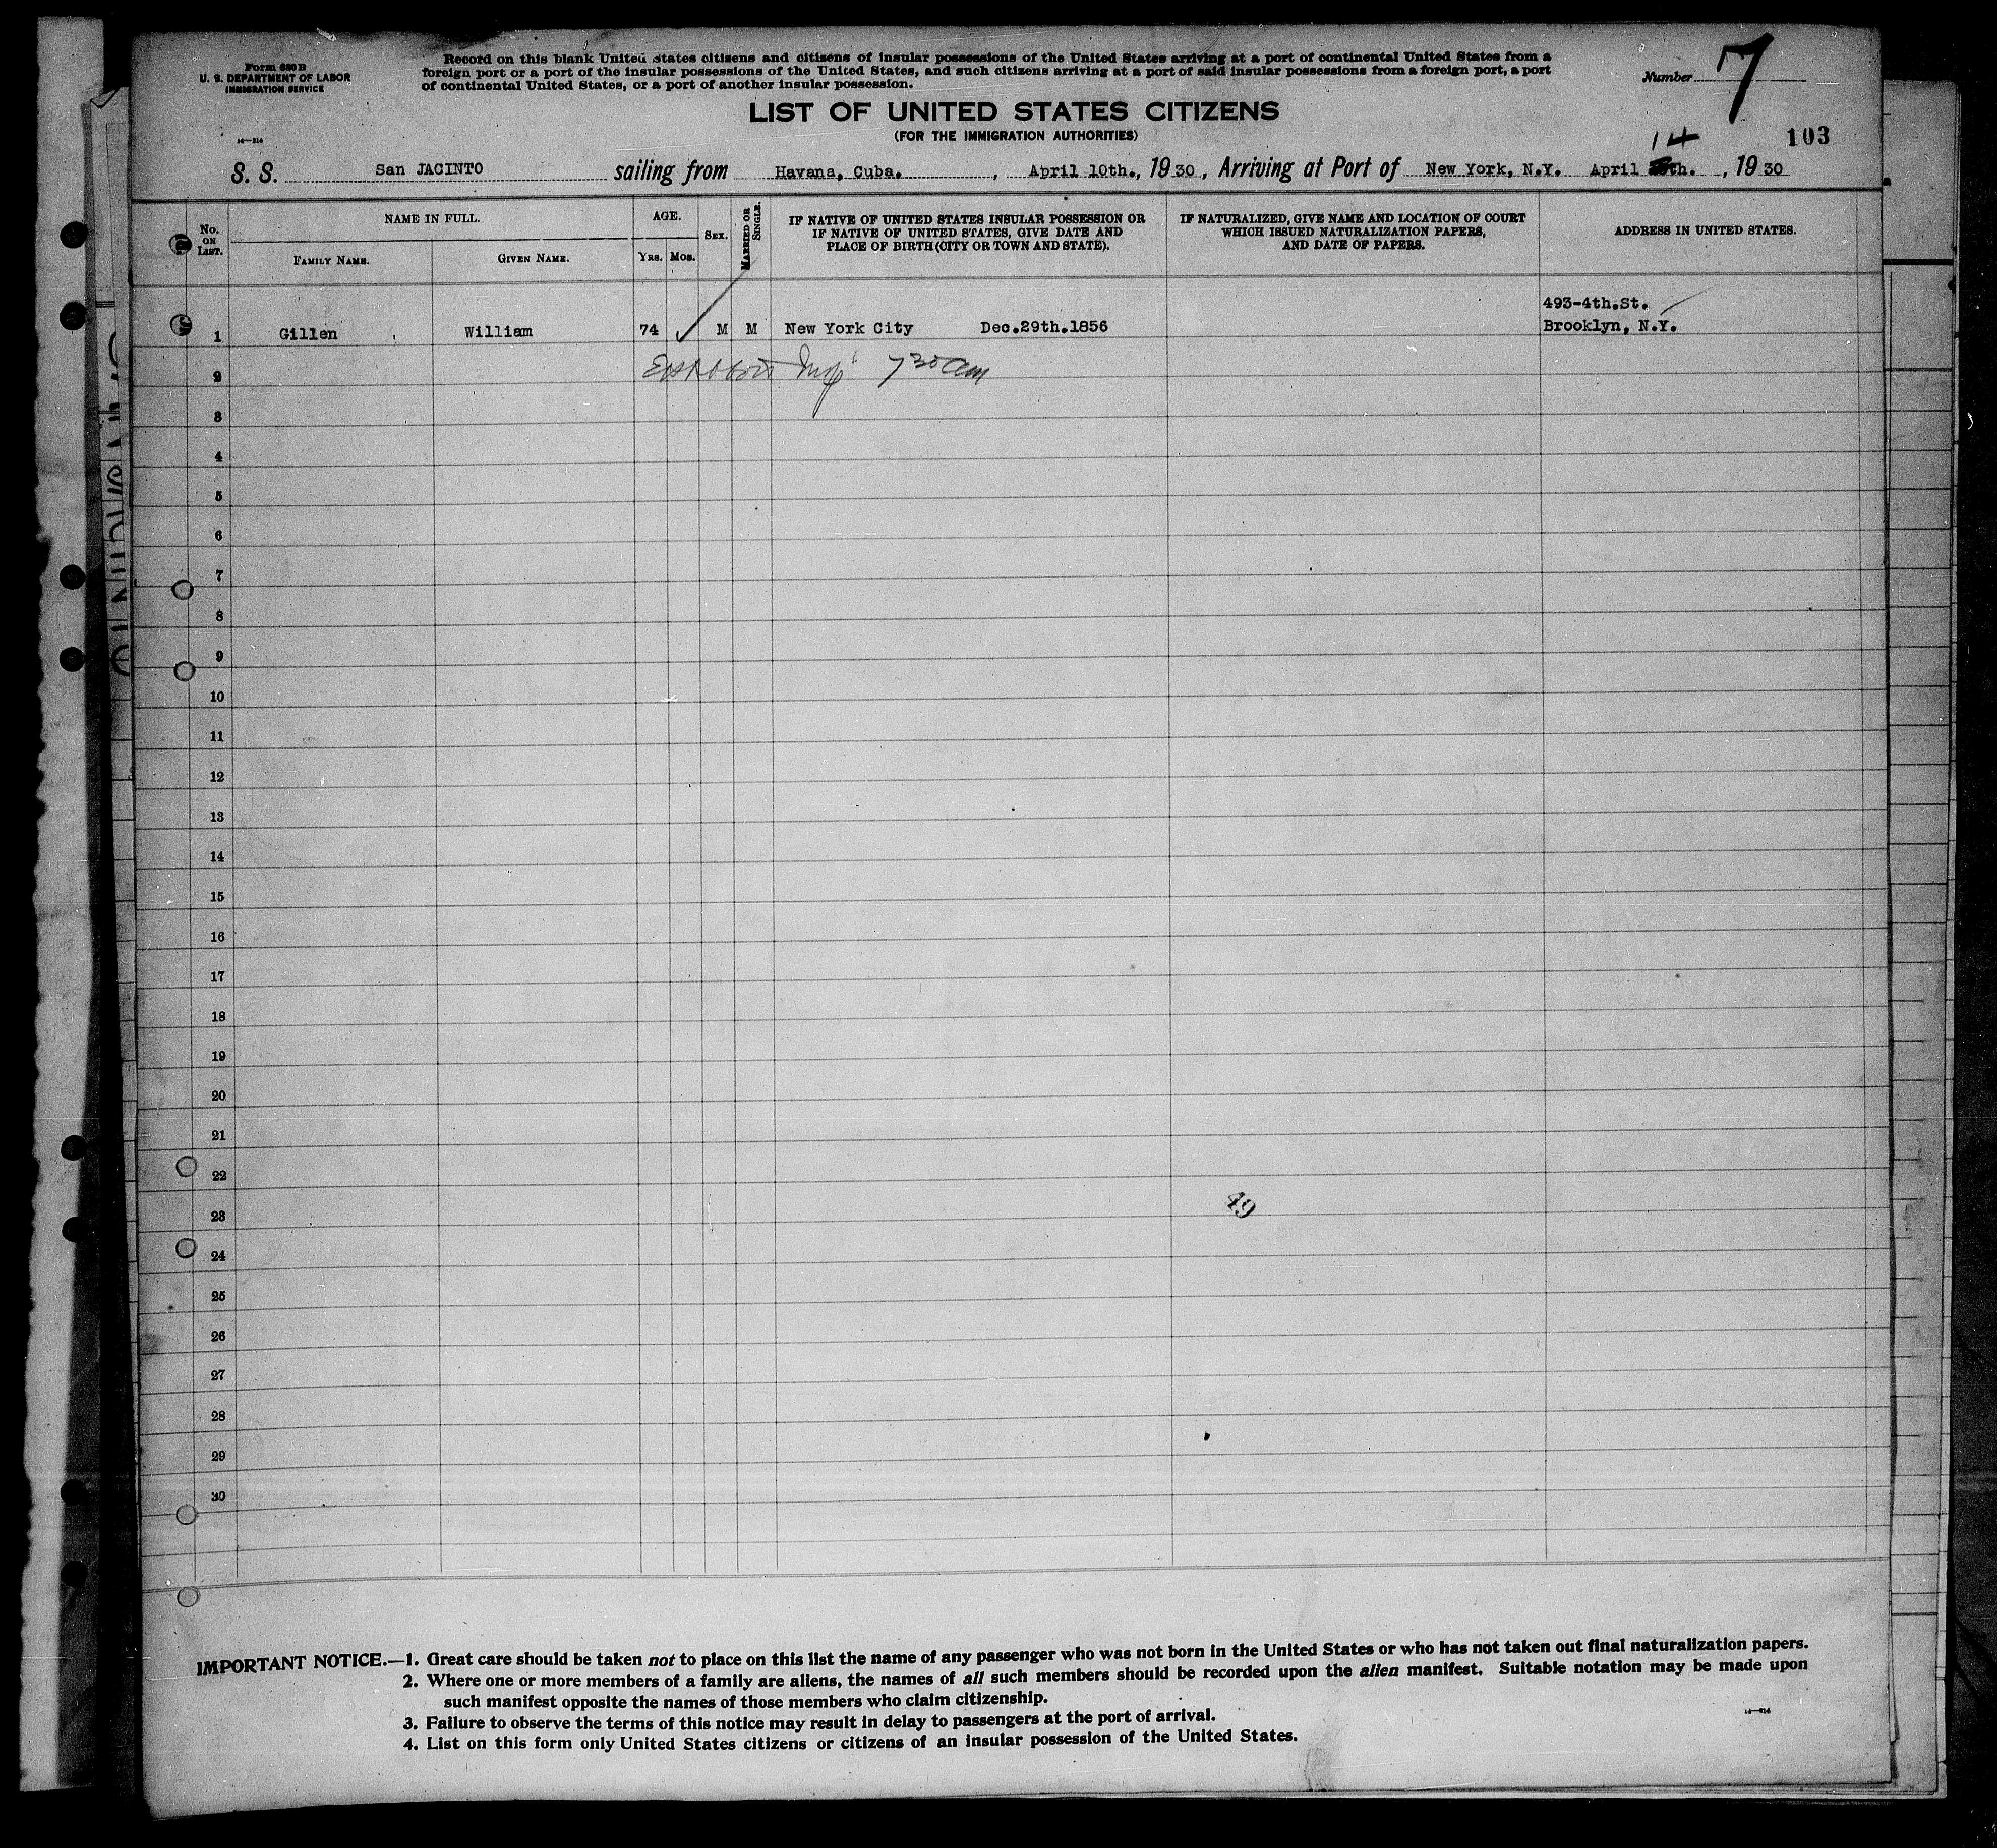 Form 630 B
U. S. DEPARTMENT OF LABOR
IMMIGRATION SERVICE
Record on this blank United States citizens and citizens of insular possessions of the United States arriving at a port of continental United States from a
foreign port or a port of the insular possessions of the United States, and such citizens arriving at a port of said insular possessions from a foreign port, a port
of continental United States, or a port of another insular possession.
Number 7
LIST OF UNITED STATES CITIZENS
(FOR THE IMMIGRATION AUTHORITIES)
14
103
S. S. San JACINTO sailing from Havana, Cuba. , April 10th., 19 30 , Arriving at Port of New York, N.Y. April th. , 19 30
No. ON LIST.
NAME IN FULL.
FAMILY NAME.
GIVEN NAME.
AGE.
YRS. MOS.
SEX.
MARRIED OR SINGLE.
IF NATIVE OF UNITED STATES INSULAR POSSESSION OR
IF NATIVE OF UNITED STATES, GIVE DATE AND
PLACE OF BIRTH (CITY OR TOWN AND STATE).
IF NATURALIZED, GIVE NAME AND LOCATION OF COURT
WHICH ISSUED NATURALIZATION PAPERS,
AND DATE OF PAPERS.
ADDRESS IN UNITED STATES.
493-4th.St.
1 Gillen William 74 M M New York City Dec.29th.1856 Brooklyn, N.Y.
7 30 am
2
3
4
5
6
7
8
9
10
11
12
13
14
15
16
17
18
19
20
21
22
23
49
24
25
26
27
28
29
30
IMPORTANT NOTICE.—1. Great care should be taken not to place on this list the name of any passenger who was not born in the United States or who has not taken out final naturalization papers.
2. Where one or more members of a family are aliens, the names of all such members should be recorded upon the alien manifest. Suitable notation may be made upon
such manifest opposite the names of those members who claim citizenship.
3. Failure to observe the terms of this notice may result in delay to passengers at the port of arrival.
4. List on this form only United States citizens or citizens of an insular possession of the United States.